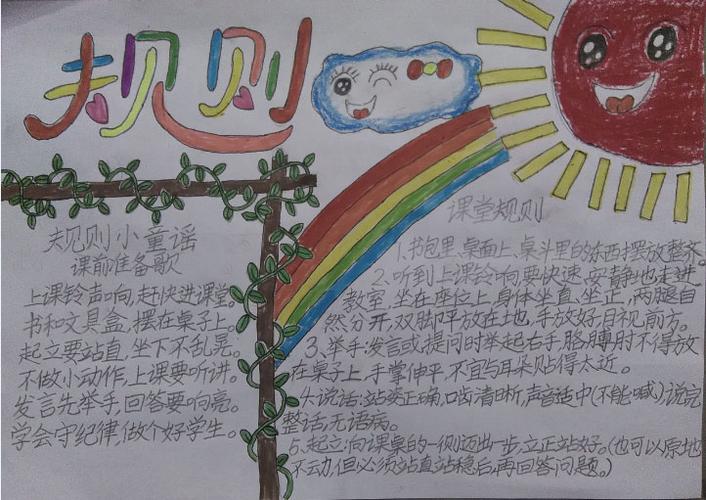 规则
规则小童谣
课前准备歌
上课铃声响,赶快进课堂。
书和文具盒,摆在桌子上。
起立要站直,坐下不乱晃。
不做小动作,上课要听讲。
发言先举手,回答要响亮。
学会守纪律,做个好学生。
课堂规则
1、书包里、桌面上、桌斗里的东西摆放整齐。
2、听到上课铃响,要快速、安静地走进
教室,坐在座位上,身体坐直、坐正,两腿自
然分开,双脚平放在地,手放好,目视前方。
3、举手:发言或提问时举起右手,胳膊肘不得放
在桌子上,手掌伸平,不宜与耳朵贴得太近。
4、说话:站姿正确,口齿清晰,声音适中(不能喊),说完
整话,无语病。
5、起立:向课桌的一侧迈出一步,立正站好。(也可以原地
不动,但必须站直站稳后,再回答问题。)